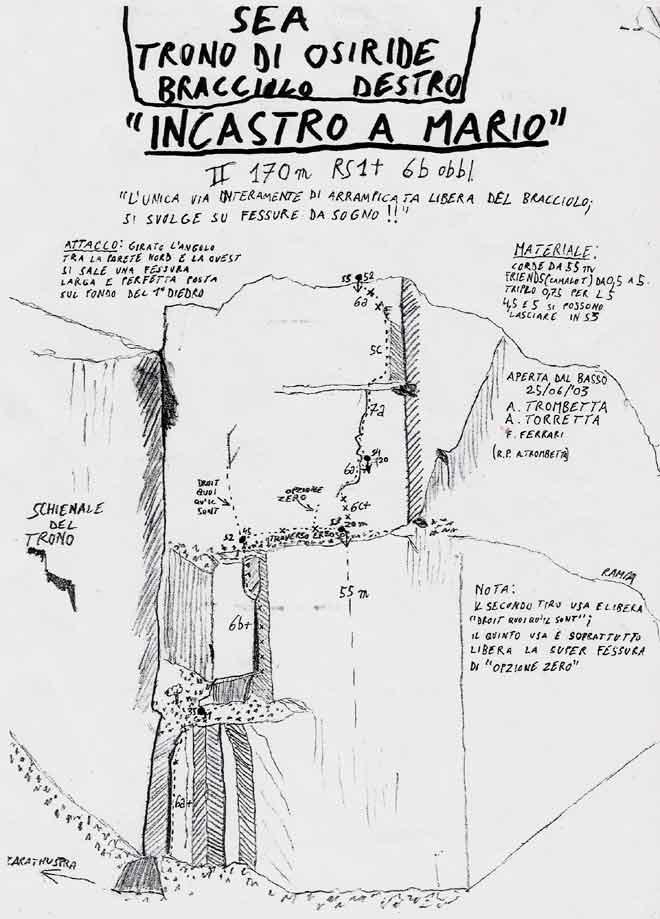 SEA
TRONO DI OSIRIDE
BRACCIOLO DESTRO
"INCASTRO A MARIO"
II 170m RS1+ 6b obbl.
"L'UNICA VIA INTERAMENTE DI ARRAMPICATA LIBERA DEL BRACCIOLO;
SI SVOLGE SU FESSURE DA SOGNO!!"
ATTACCO: GIRATO L'ANGOLO
TRA LA PARETE NORD E LA OVEST
SI SALE UNA FESSURA
LARGA E PERFETTA POSTA
SUL FONDO DEL 1° DIEDRO
MATERIALE:
CORDE DA 55 m
FRIENDS (CAMALOT) DA 0,5 A 5.
TRIPLO 0,75 PER L5
4,5 E 5 SI POSSONO
LASCIARE IN S3
S5 52
6a
5c
APERTA DAL BASSO
25/06/'03
A. TROMBETTA
A. TORRETTA
F. FERRARI
(R.P. A. TROMBETTA)
7a
S4
20
6a
DROIT
QUOI
QU'IL
SONT
OPZIONE
ZERO
6c+
SCHIENALE
DEL
TRONO
S2
45
TRAVERSO ERBOSO
S3
20m
55 m
RAMPA
NOTA:
IL SECONDO TIRO USA E LIBERA
"DROIT QUOI QU'IL SONT";
IL QUINTO USA E SOPRATTUTTO
LIBERA LA SUPER FESSURA
DI "OPZIONE ZERO"
6b+
6a+
ZARATHUSTRA